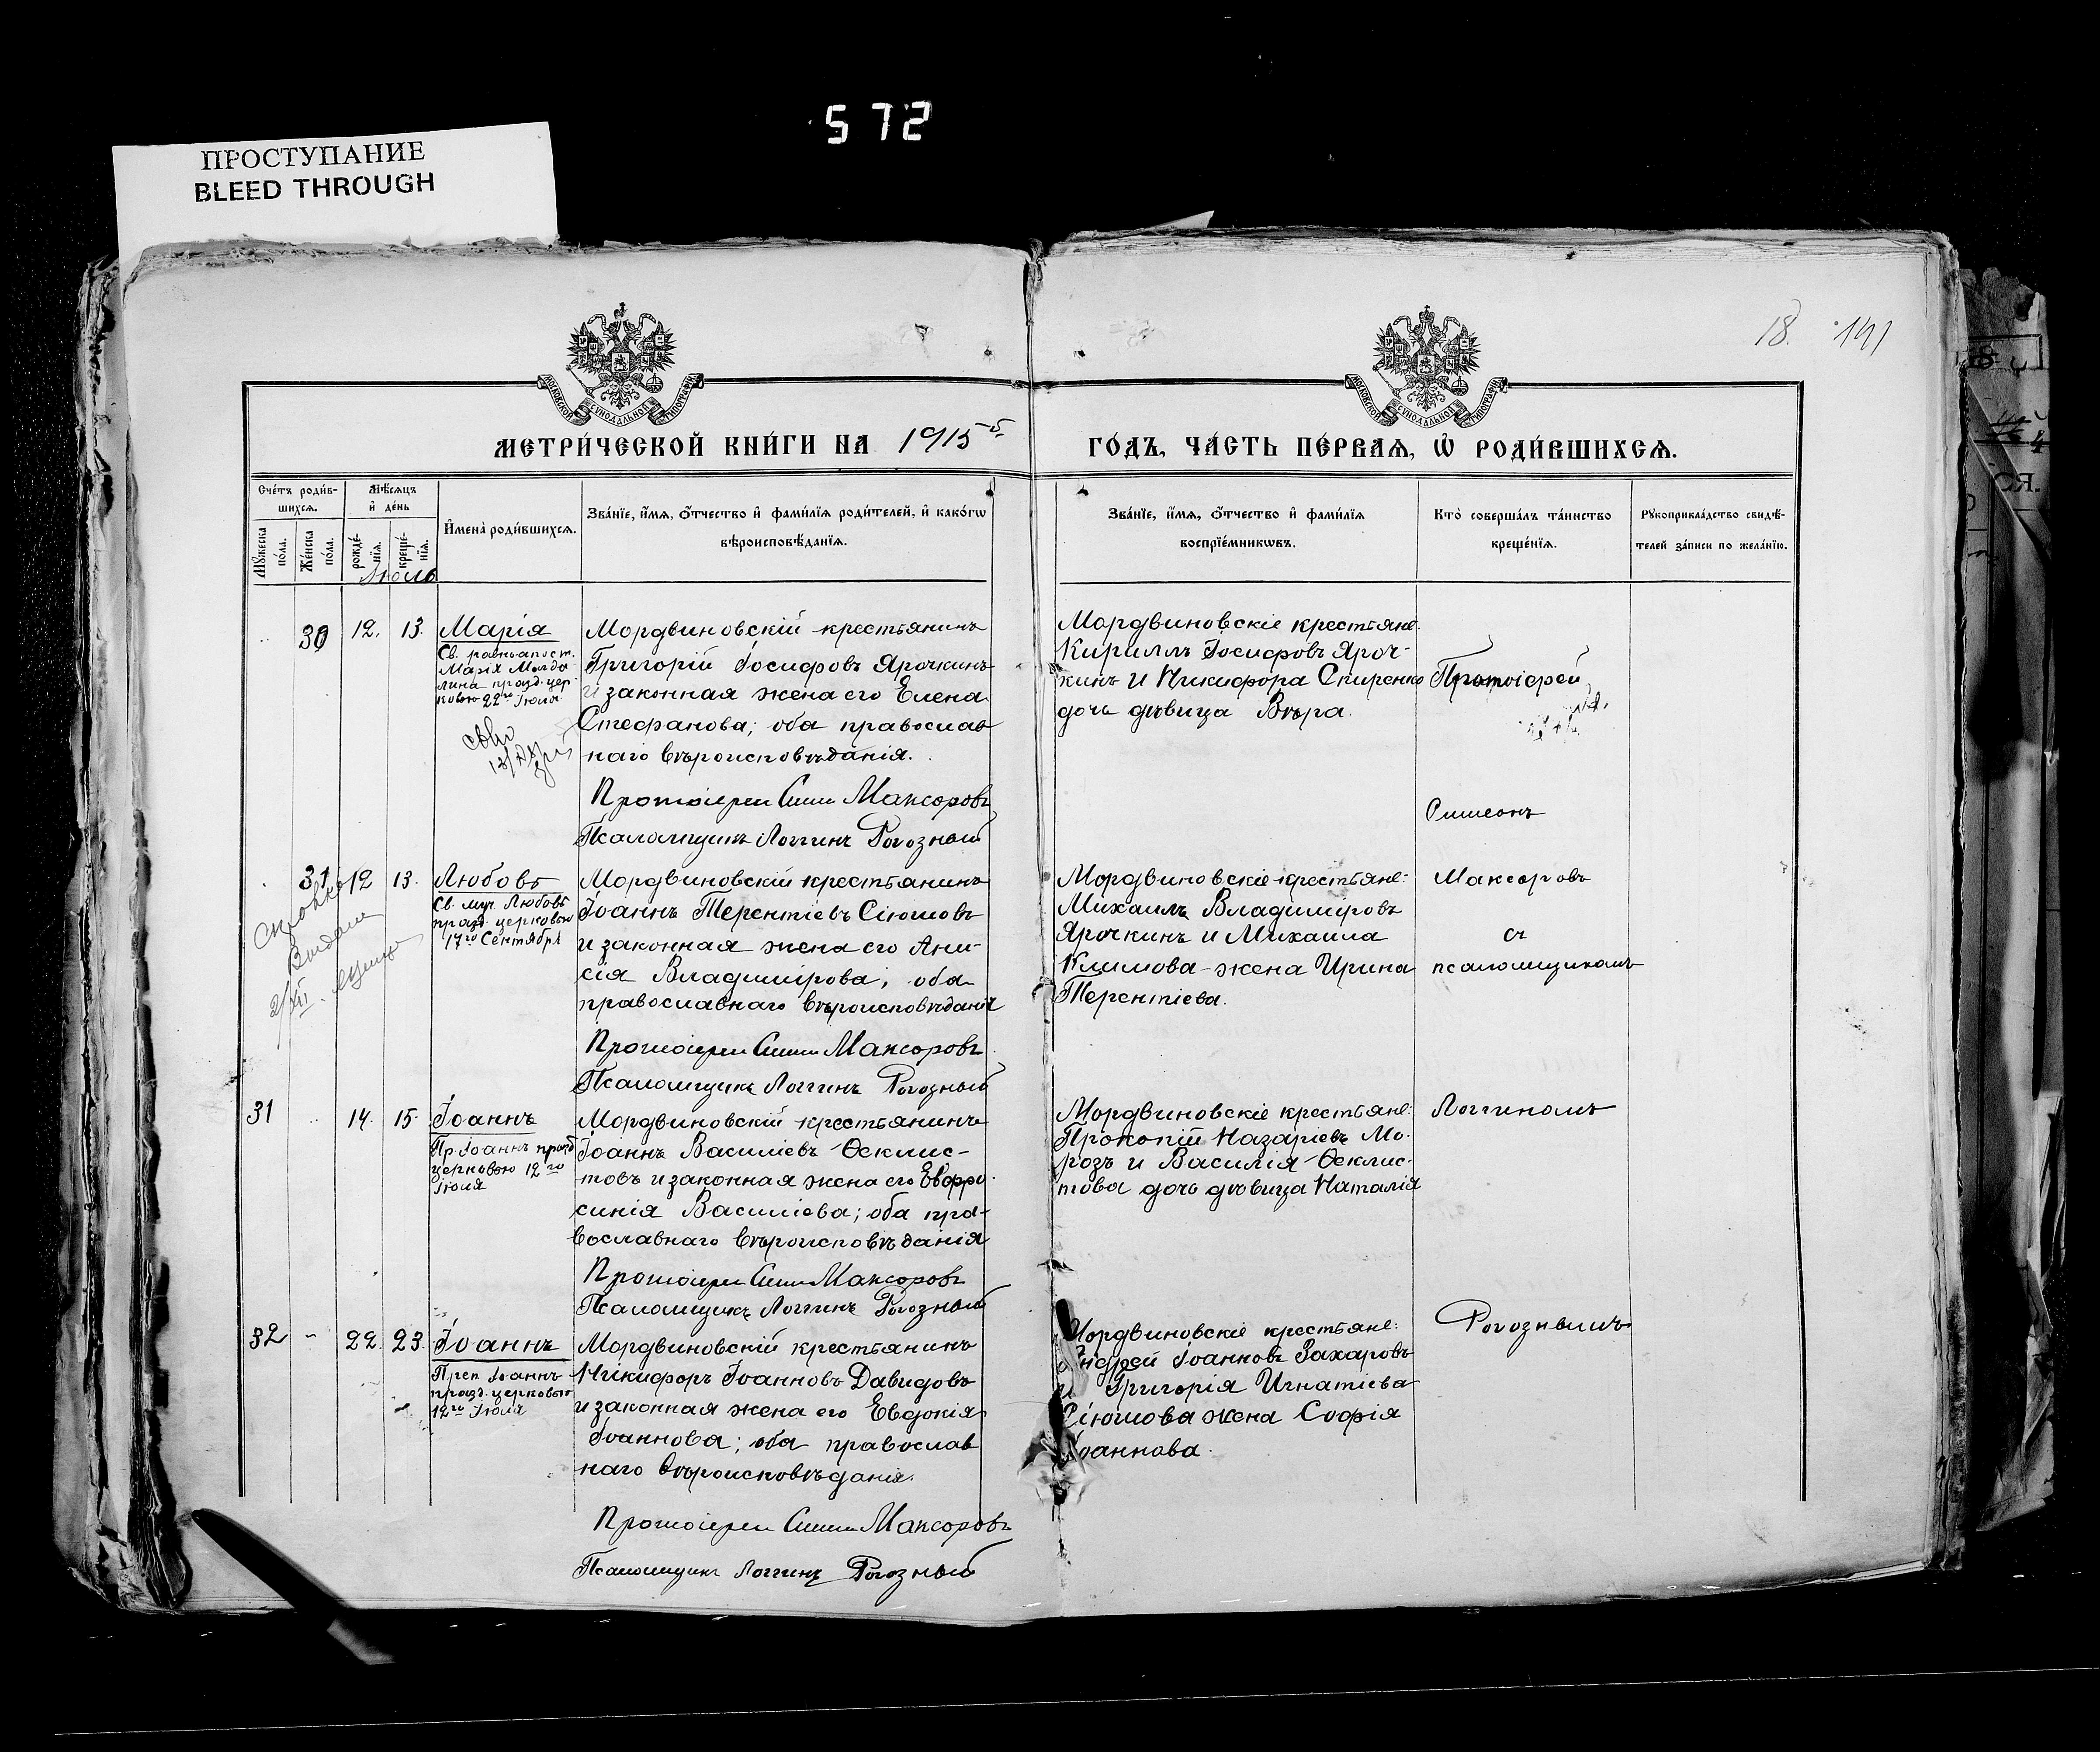 572
ПРОСТУПАНИЕ
BLEED THROUGH
18. 141
МОСКОВСКОЙ СУНОДАЛЬНОЙ ТИПОГРАФІИ
МОСКОВСКОЙ СУНОДАЛЬНОЙ ТИПОГРАФІИ
МЕТРИ́ЧЕСКОЙ КНИ́ГИ НА 1915й
ГО́ДЪ, ЧА́СТЬ ПЕ́РВАѦ, Ѿ РОДИ́ВШИХСѦ.
Сче́тъ роди́в-
шихсѧ.
Мѣ́сѧцъ
и҆ де́нь
Мꙋ́жеска
по́ла.
Же́нска
по́ла.
рожде́-
нїѧ.
креще́-
нїѧ.
Июль
И҆мена̀ роди́вшихсѧ.
Зва́нїе, и҆́мѧ, ѻ҆́тчество и҆ фами́лїѧ роди́телей, и҆ како́гѡ
вѣроисповѣ́данїѧ.
Зва́нїе, и҆́мѧ, ѻ҆́тчество и҆ фами́лїѧ
воспрїе́мникѡвъ.
Кто̀ соверша́лъ та́инство
креще́нїѧ.
Рꙋкоприкла́дство свидѣ́-
телей за́писи по жела́нїю.
30 12. 13. Марія
Св. равноапост.
Марія Магда
лина празд. цер
ковью 22го Іюля
Мордвиновскій крестьянинъ
Григорій Іосифовъ Ярочкинъ
и законная жена его Елена
Стефанова; оба православ
наго вѣроисповѣданія.
Протоіерей Симе Максоровъ
Псаломщикъ Логгинъ Рогозный
Мордвиновскіе крестьяне:
Кириллъ Іосифовъ Яроч-
кинъ и Никифора Спиренко
дочь дѣвица Вѣра.
Протоіерей
Симеонъ
31 12 13. Любовь
Св. муч. Любовь
празд. церковью
17го Сентября
Мордвиновскій крестьянинъ
Іоаннъ Терентіевъ Сіюмовъ
и законная жена его Ани-
сія Владимірова; оба
православнаго вѣроисповѣданія
Протоіерей Симе Максоровъ
Псаломщикъ Логгинъ Рогозный
Мордвиновскіе крестьяне:
Михаилъ Владиміровъ
Ярочкинъ и Михаила
Климова жена Ирина
Терентіева.
Максоровъ
съ
псаломщикомъ
31 14. 15. Іоаннъ
Пр. Іоаннъ празд
церковью 12го
Іюля
Мордвиновскій крестьянинъ
Іоаннъ Василіевъ Ѳеклис-
товъ и законная жена его Евфро
синія Василіева; оба пра-
вославнаго вѣроисповѣданія
Протоіерей Симе Максоровъ
Псаломщикъ Логгинъ Рогозный
Мордвиновскіе крестьяне:
Прокопій Назаріевъ Мо-
розъ и Василія Ѳеклис-
това дочь дѣвица Наталія
Логгиномъ
32 - 22. 23. Іоаннъ
Преп. Іоаннъ
празд. церковью
12го Іюля
Мордвиновскій крестьянинъ
Никифоръ Іоанновъ Давидовъ
и законная жена его Евдокія
Іоаннова; оба православ
наго вѣроисповѣданія.
Протоіерей Симе Максоровъ
Псаломщикъ Логгинъ Рогозный
Мордвиновскіе крестьяне:
Андрей Іоанновъ Захаровъ
и Григорія Игнатіева
Сіюмова жена Софія
Іоаннова.
Рогознымъ